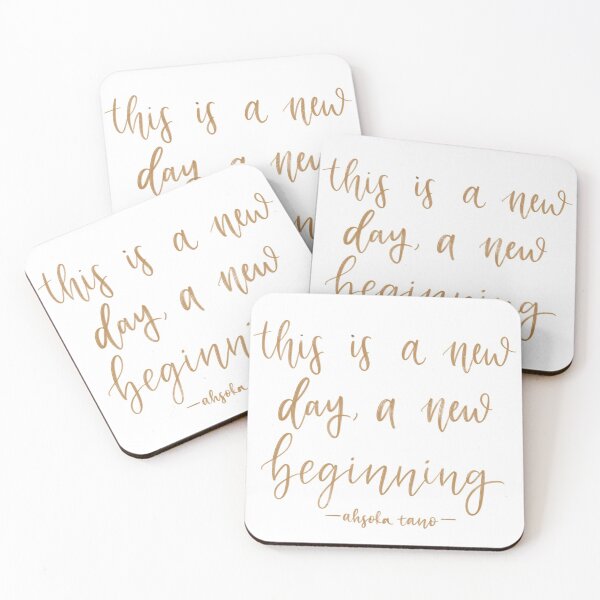 this is a new
day, a new
this is a new
day, a new
beginning
this is a new
day, a new
beginning
—ahsoka
this is a new
day, a new
beginning
—ahsoka tano—